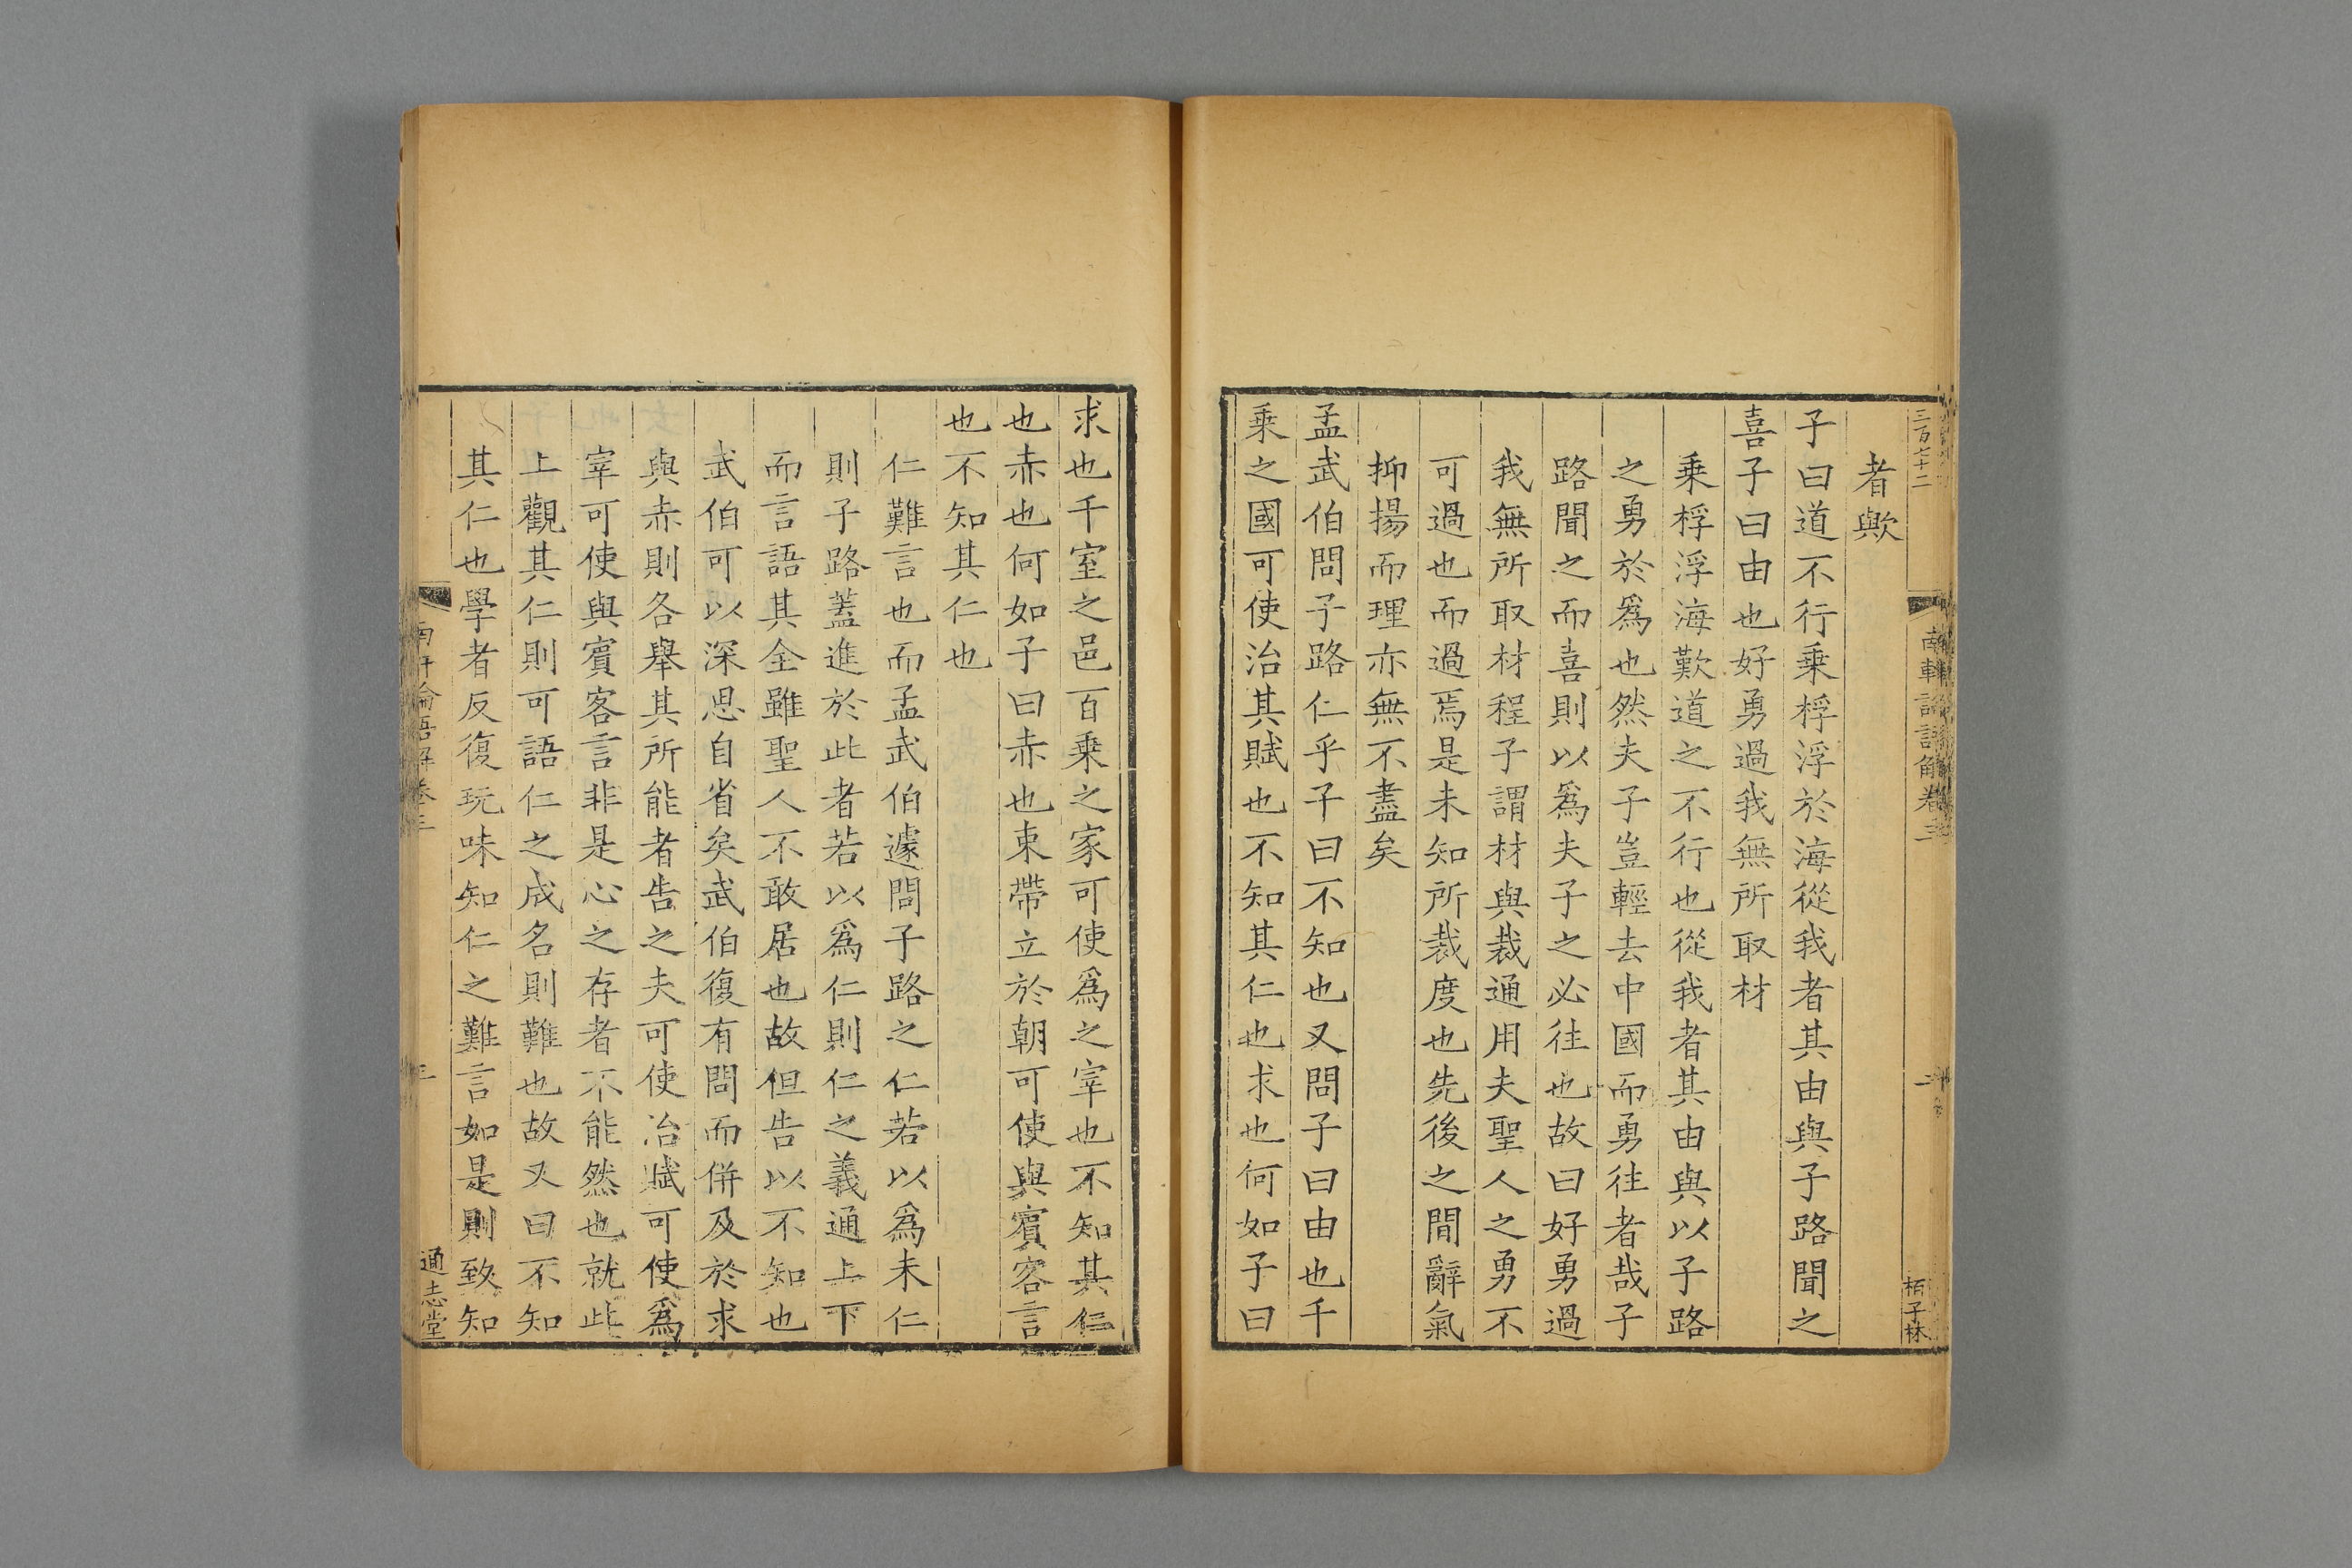 三百七十二
南軒論語解卷三
二
栢子林
者歟
子曰道不行乗桴浮於海從我者其由與子路聞之
喜子曰由也好勇過我無所取材
乗桴浮海歎道之不行也從我者其由與以子路
之勇於爲也然夫子豈輕去中國而勇往者哉子
路聞之而喜則以爲夫子之必往也故曰好勇過
我無所取材程子謂材與裁通用夫聖人之勇不
可過也而過焉是未知所裁度也先後之間辭氣
抑揚而理亦無不盡矣
孟武伯問子路仁乎子曰不知也又問子曰由也千
乗之國可使治其賦也不知其仁也求也何如子曰
求也千室之邑百乗之家可使爲之宰也不知其仁
也赤也何如子曰赤也束帶立於朝可使與賓客言
也不知其仁也
仁難言也而孟武伯遽問子路之仁若以爲未仁
則子路蓋進於此者若以爲仁則仁之義通上下
而言語其全雖聖人不敢居也故但告以不知也
武伯可以深思自省矣武伯復有問而併及於求
與赤則各舉其所能者告之夫可使治賦可使爲
宰可使與賓客言非是心之存者不能然也就此
上觀其仁則可語仁之成名則難也故又曰不知
其仁也學者反復玩味知仁之難言如是則致知
南軒論語解卷三
三
通志堂